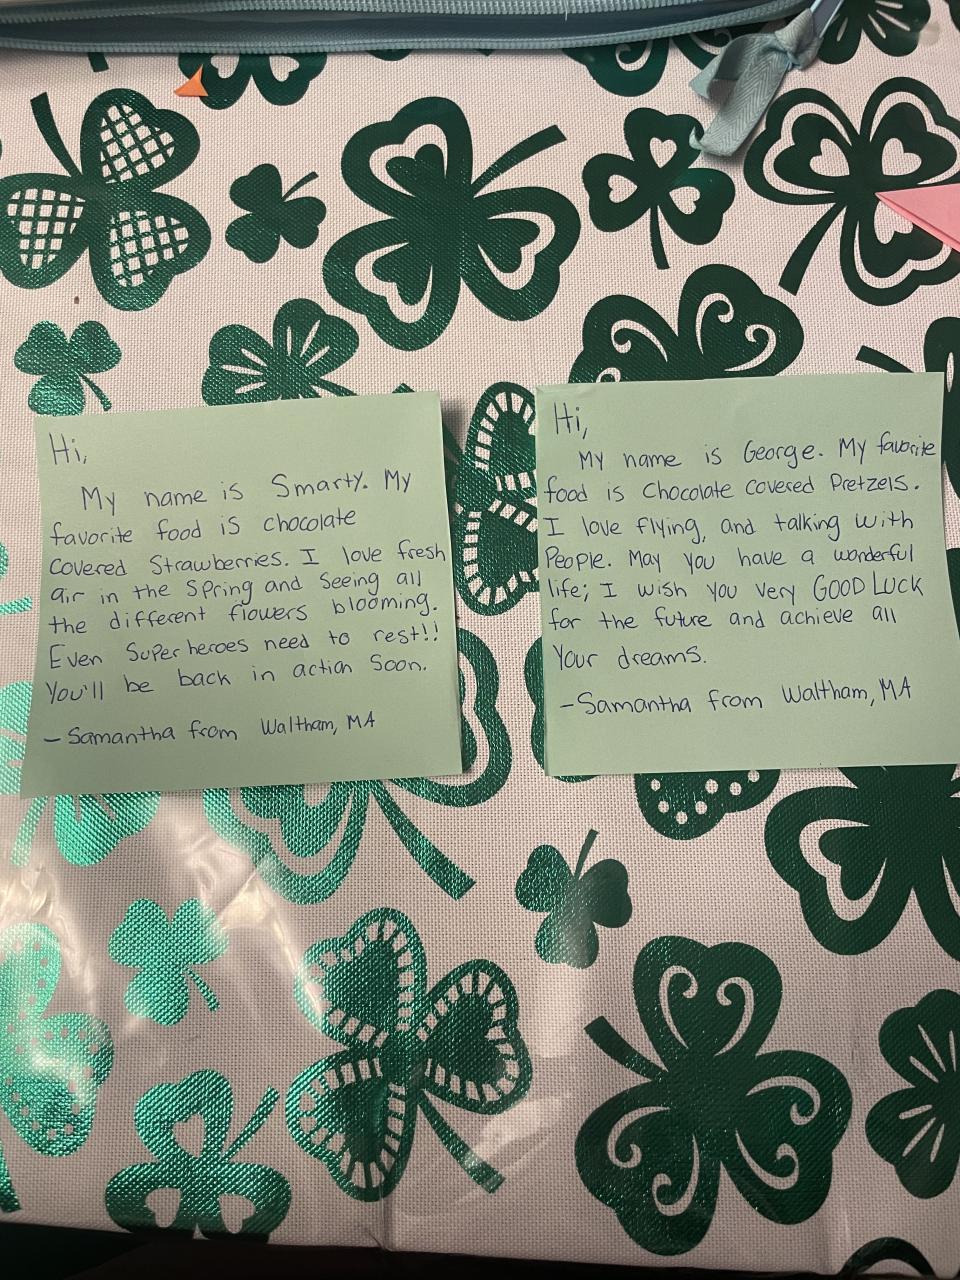 Hi,
My name is Smarty. My
favorite food is chocolate
covered Strawberries. I love fresh
air in the Spring and Seeing all
the different flowers blooming.
Even Superheroes need to rest!!
You'll be back in action Soon.
- Samantha from Waltham, MA
Hi,
My name is George. My favorite
food is Chocolate covered Pretzels.
I love flying, and talking with
People. May you have a wonderful
life; I wish you very GOOD LUCK
for the future and achieve all
Your dreams.
- Samantha from Waltham, MA